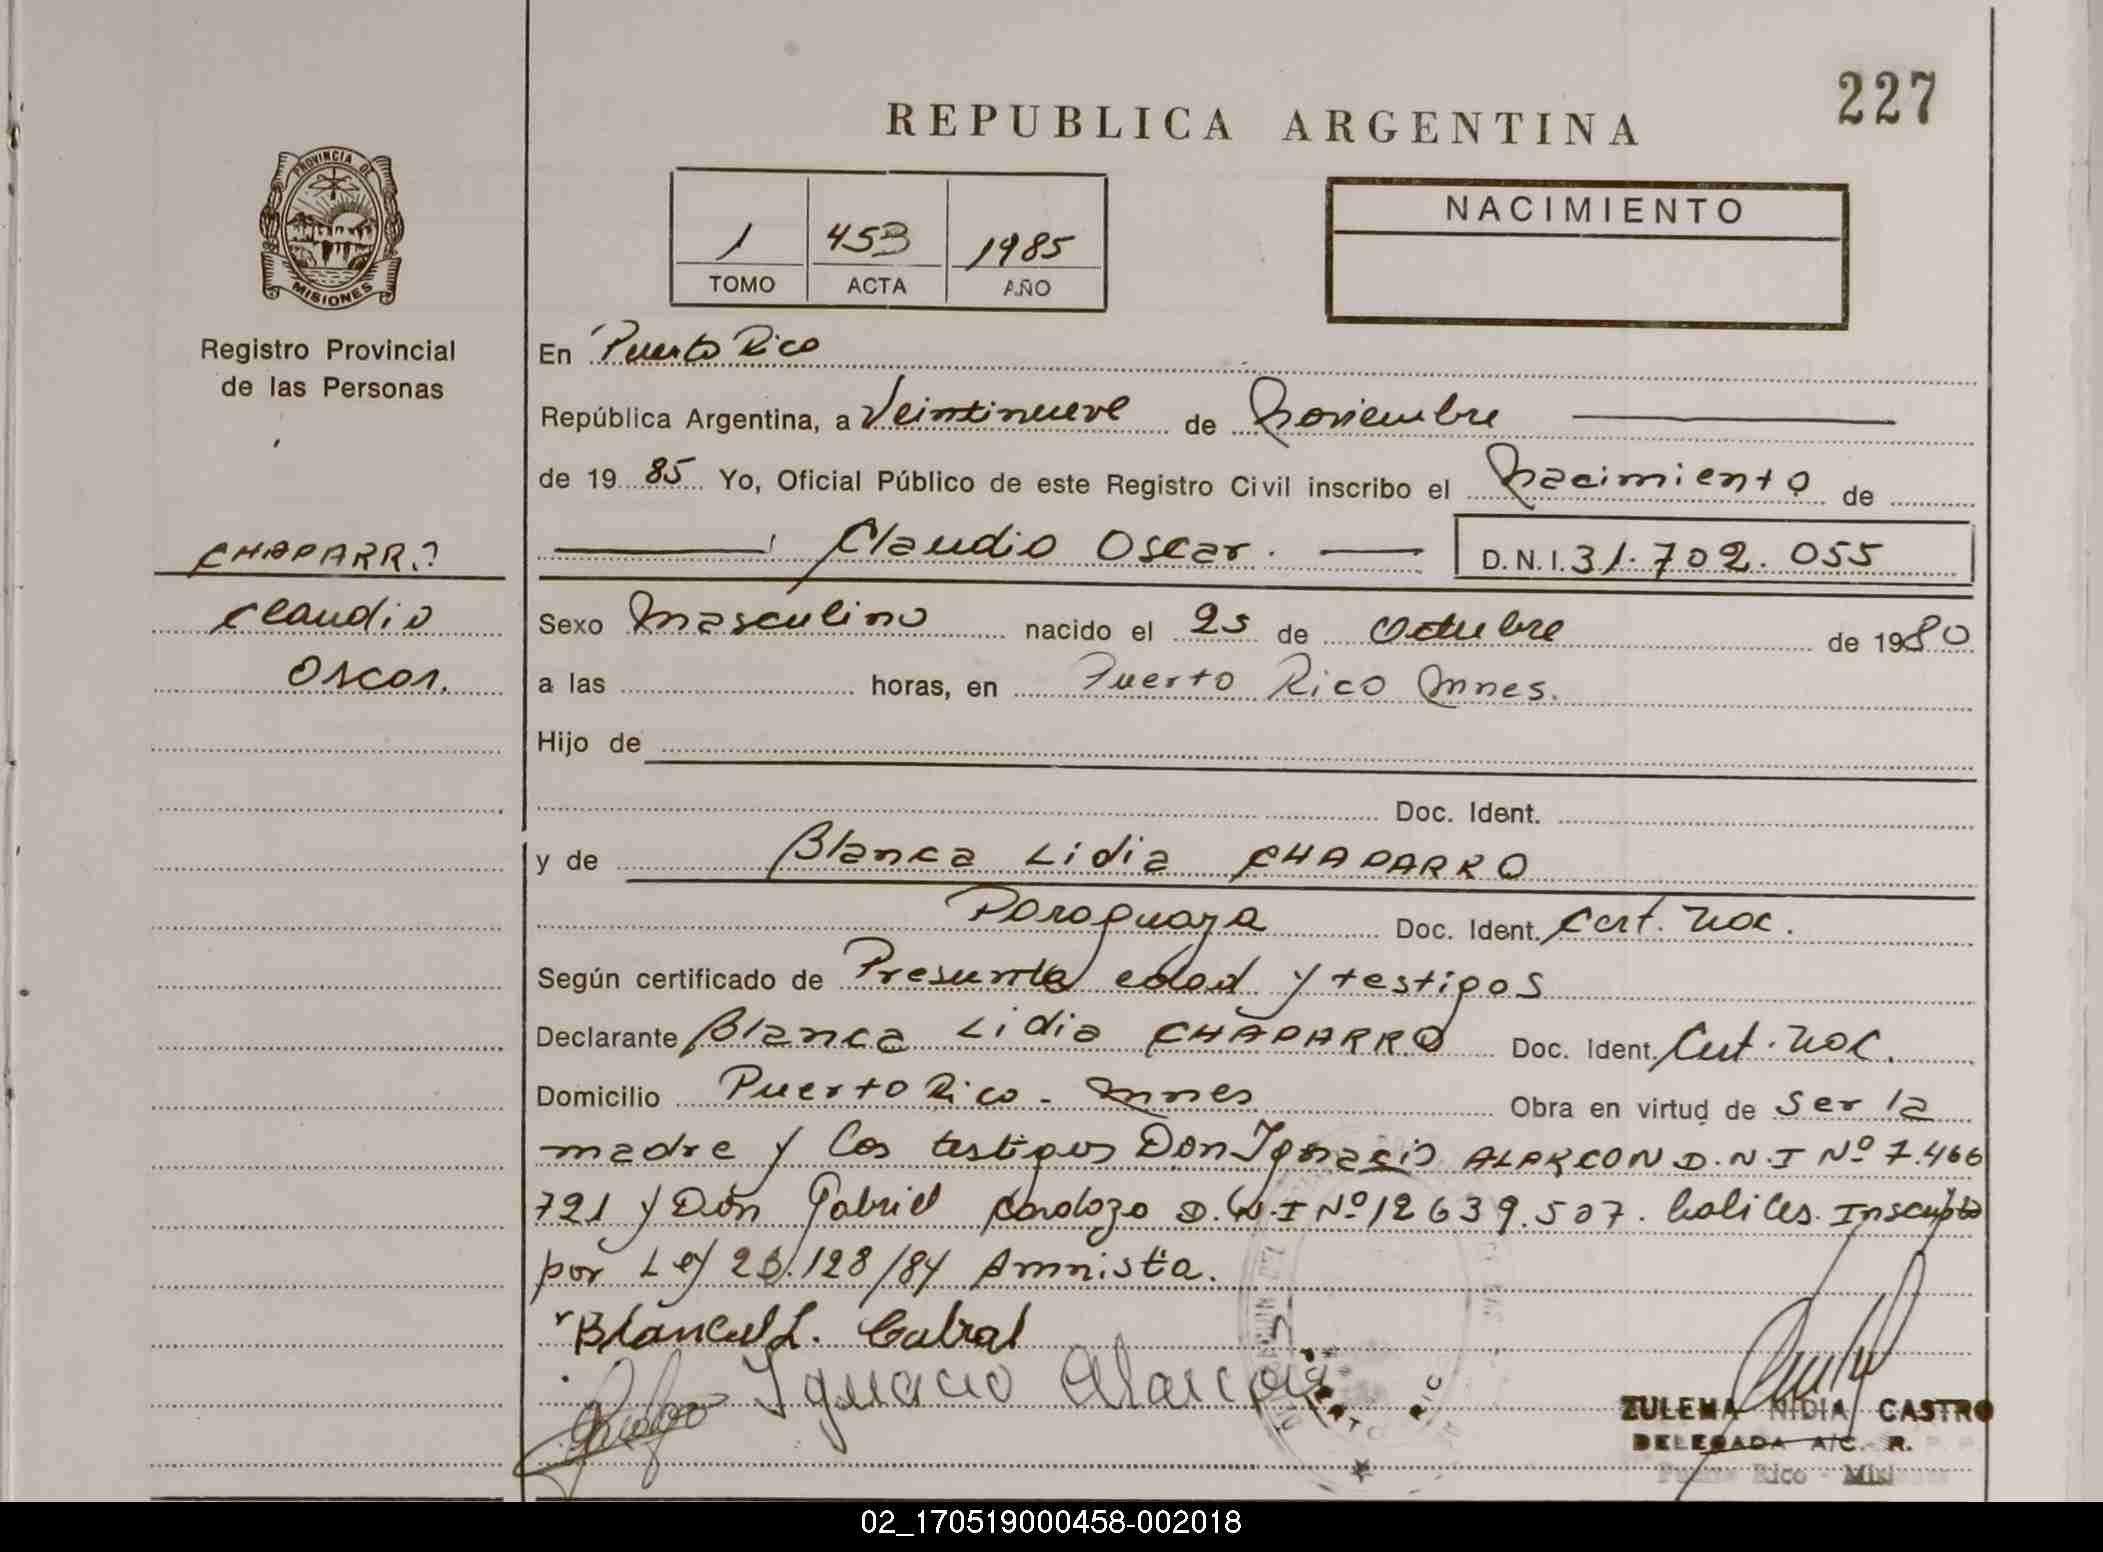 227
REPUBLICA ARGENTINA
PROVINCIA DE
MISIONES
Registro Provincial
de las Personas
1 453 1985
TOMO ACTA AÑO
NACIMIENTO
CHAPARRO
Claudio
Oscar.
En Puerto Rico
República Argentina, a Veintinueve de Noviembre
de 1985 Yo, Oficial Público de este Registro Civil inscribo el Nacimiento de
Claudio Oscar. D.N.I. 31.702.055
Sexo Masculino nacido el 25 de Octubre de 1980
a las horas, en Puerto Rico Mnes.
Hijo de
Doc. Ident.
y de Blanca Lidia CHAPARRO
Paraguaya Doc. Ident. Cert. Nac.
Según certificado de Presunta edad y testigos
Declarante Blanca Lidia CHAPARRO Doc. Ident. Cert. Nac.
Domicilio Puerto Rico - Mnes Obra en virtud de Ser la
madre y los testigos Don Ignacio ALARCON D.N.I Nº 7.466
721 y Don Gabriel Cardozo D.N.I Nº 12639.507. habiles. Inscripto
por Ley 23.128/84 Amnistia.
Blanca L. Cabral
Ignacio Alarcon
ZULEMA NIDIA CASTRO
DELEGADA A/C. R.
Puerto Rico - Misiones
02_170519000458-002018